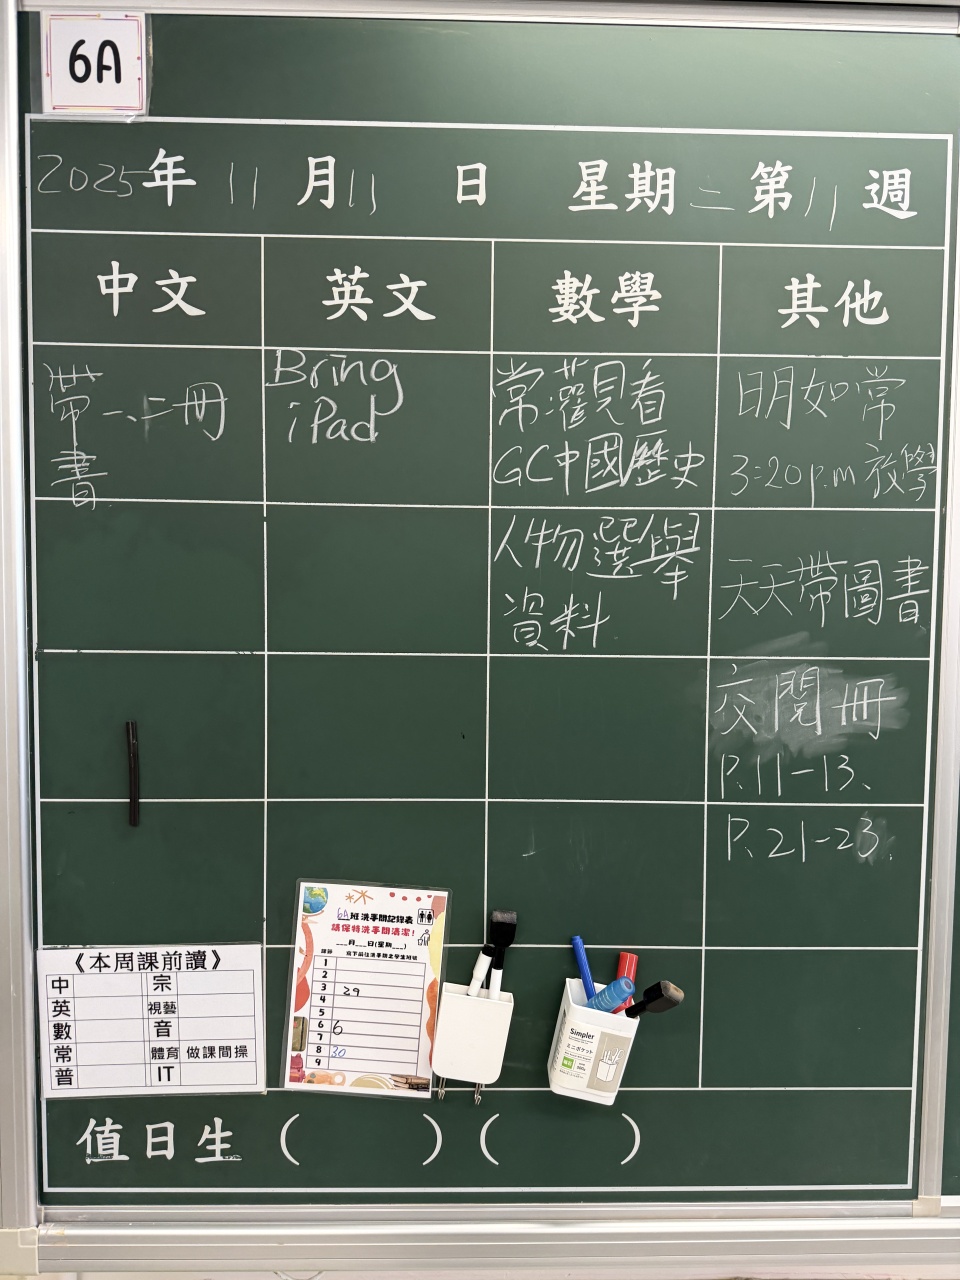 6A
2025年 11 月 11 日 星期二 第 11 週
中文 英文 數學 其他
帶一、二冊
書
Bring
iPad
常:灌觀看
GC中國歷史
人物選舉
資料
明如常
3:20p.m 放學
天天帶圖書
交閱冊
P.11-13、
P.21-23.
6A班洗手間記錄表
請保持洗手間清潔!
___月___日(星期___)
課節
1
2
3 29
4
5
6 6
7
8 30
9
Simpler
ミニポケット
《本周課前讀》
中 宗
英 視藝
數 音
常 體育 做課間操
普 IT
值日生 ( ) ( )